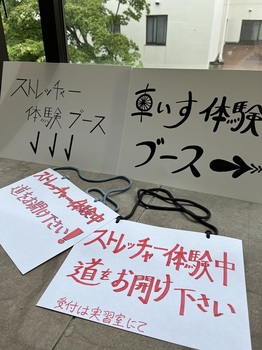 ストレッチャー
体験ブース
↓↓↓
車いす体験
ブース
ストレッチャー体験中
道をお開け下さい!!
ストレッチャー体験中
道をお開け下さい
受付は実習室にて